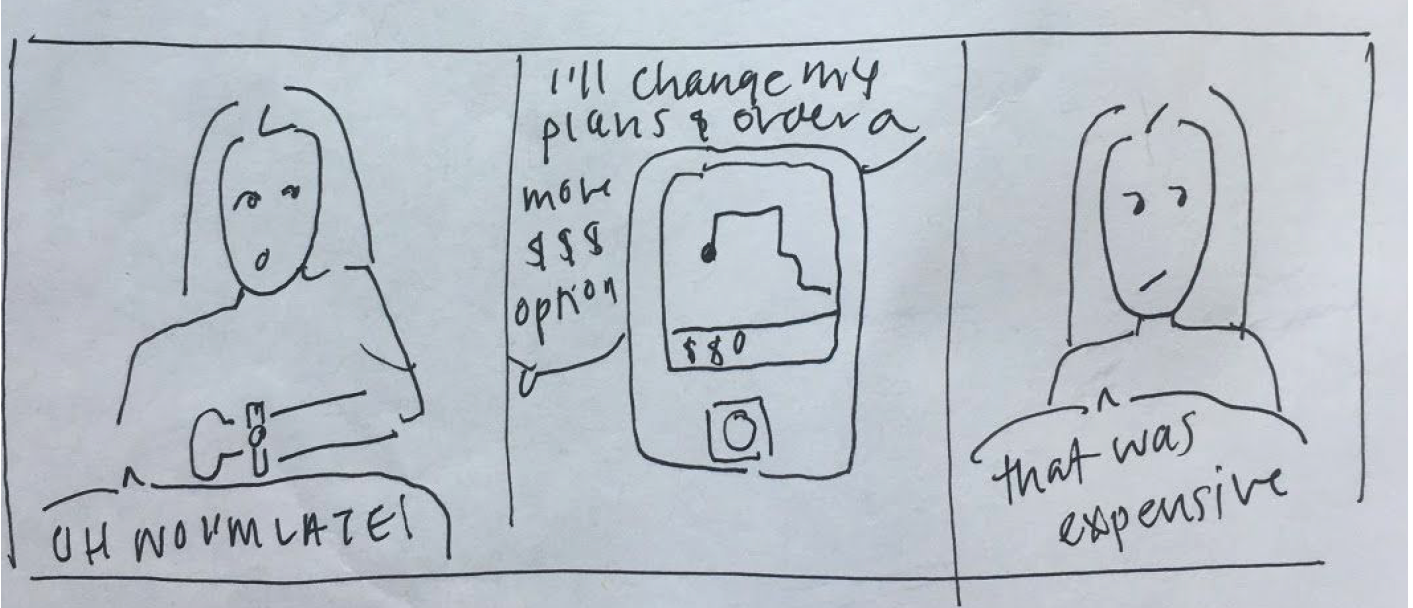 OH NO I'M LATE!
I'll change my
plans & order a
more
$$$
option
$80
that was
expensive